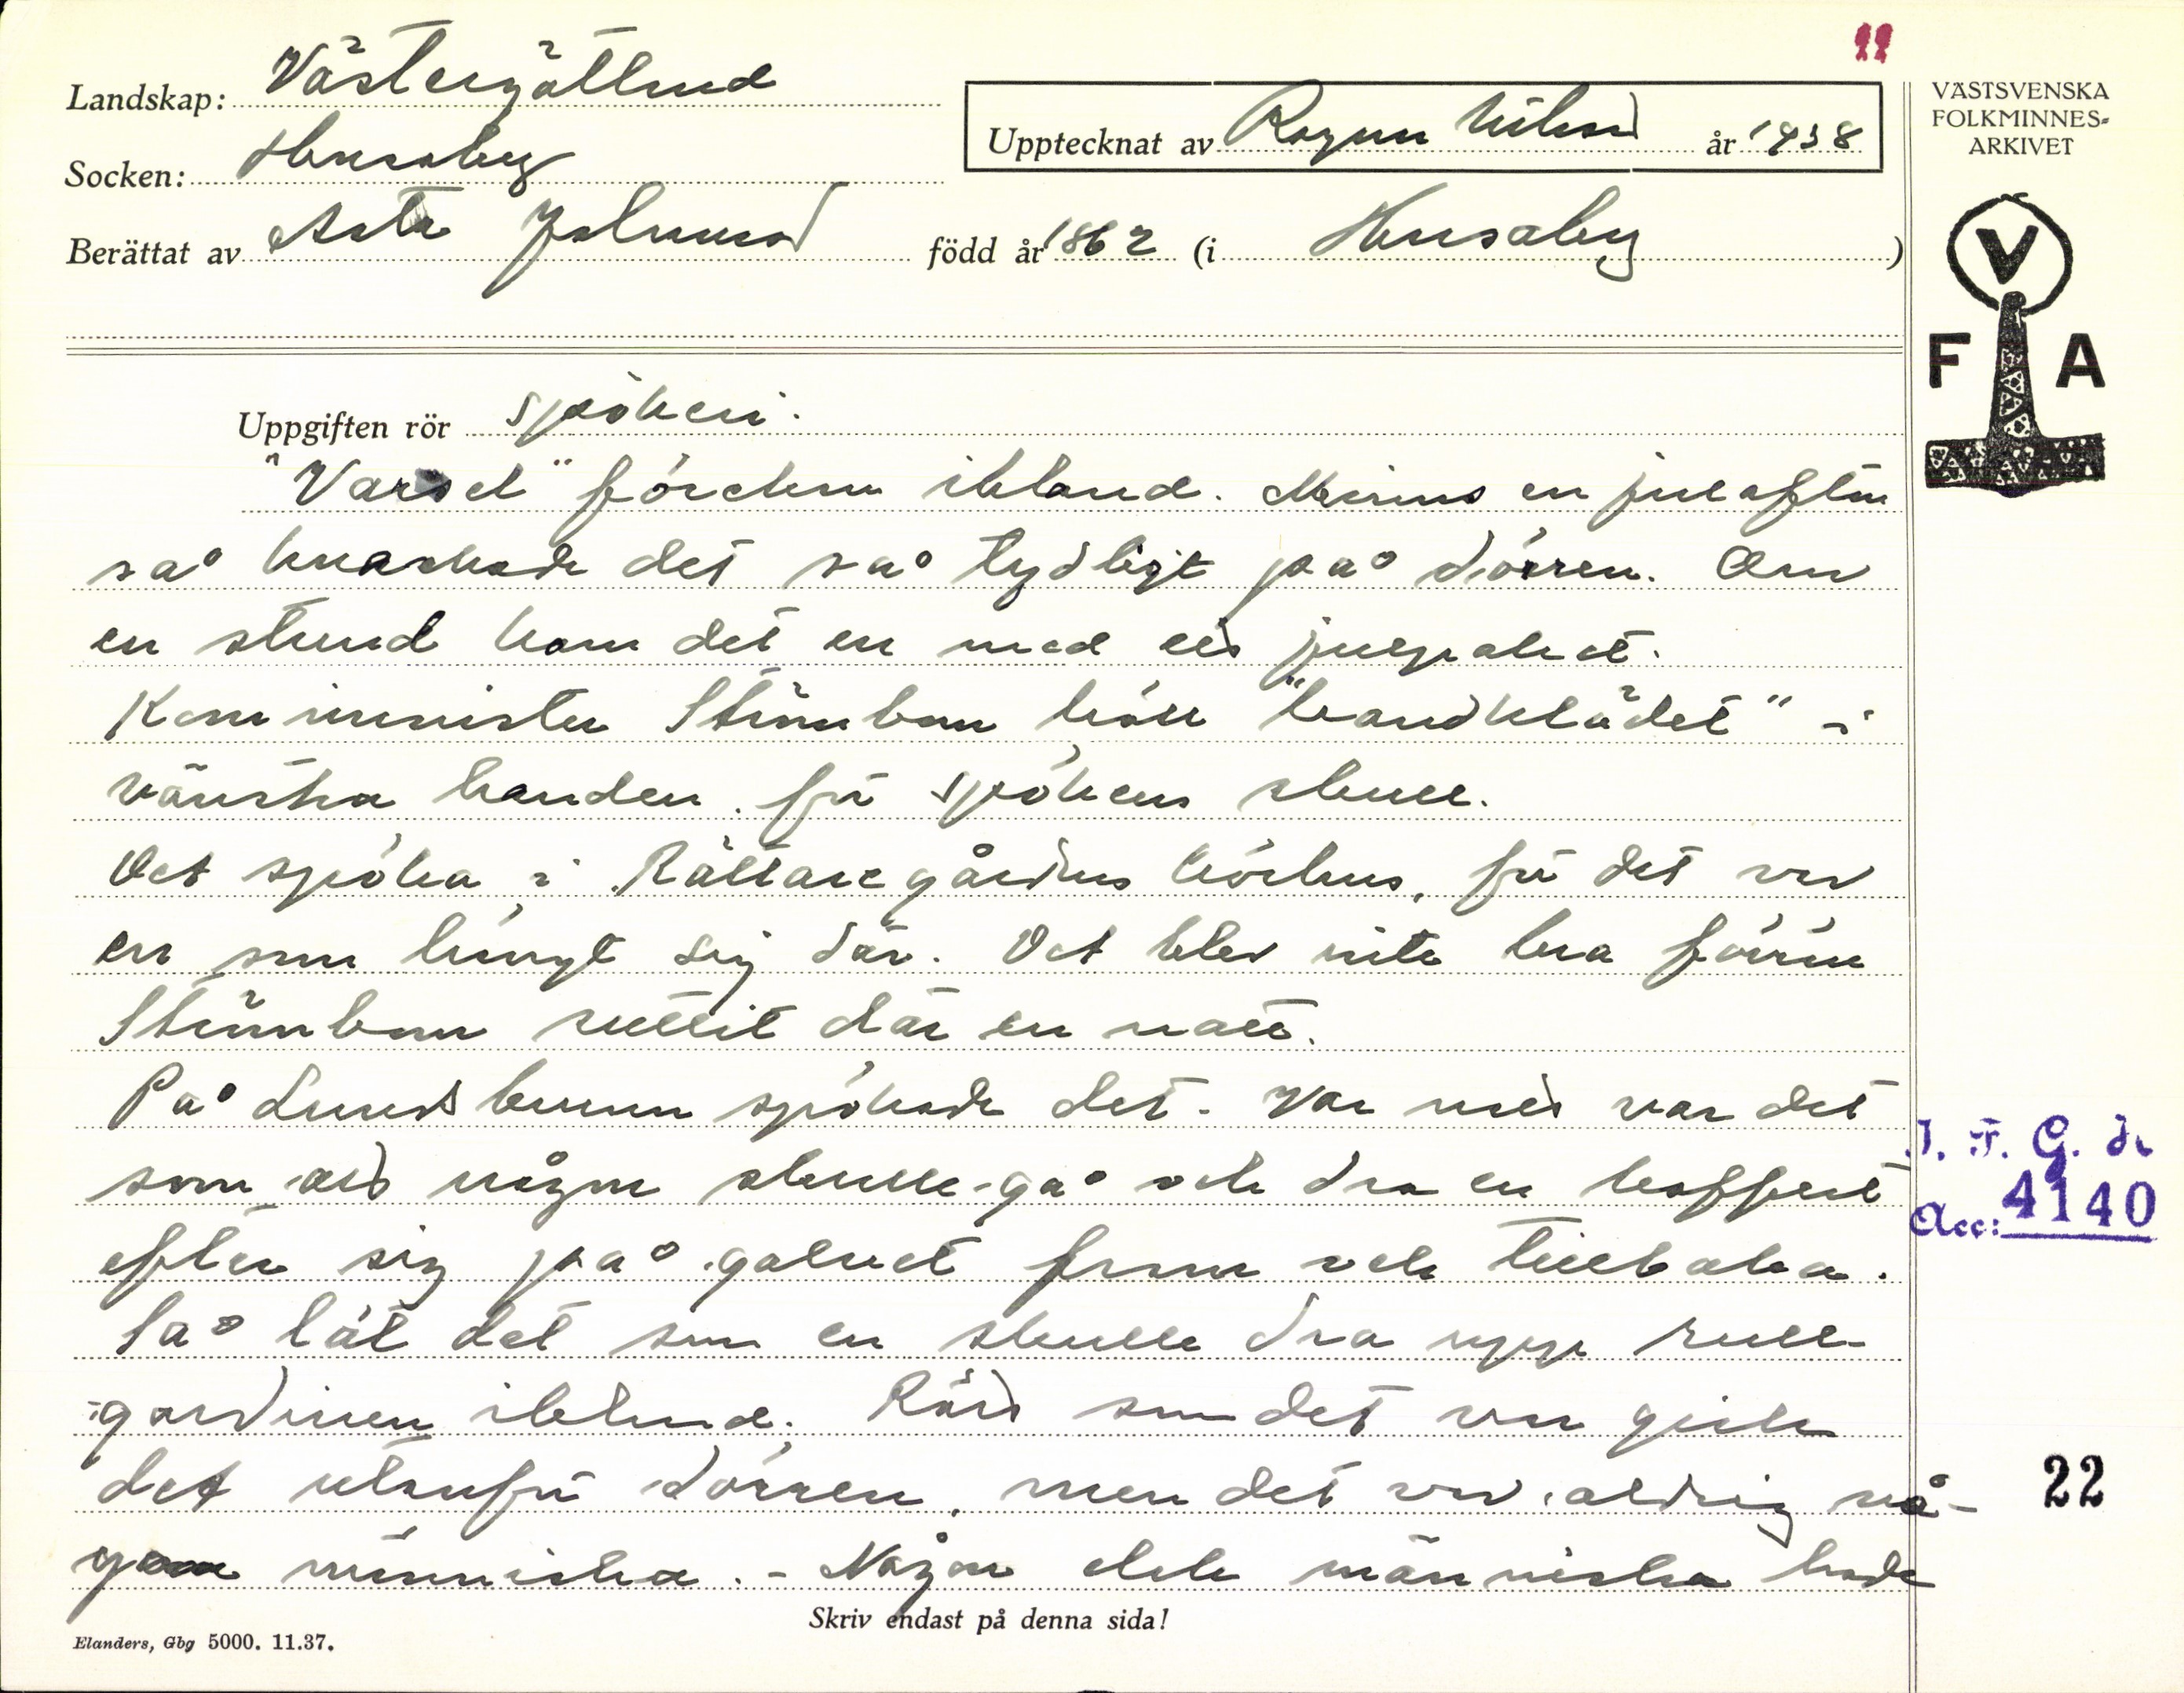 22
Landskap: Västergötland
Upptecknat av Ragnar Nilsson år 1938
Socken: Husaby
Berättat av Johansson född år 1862 (i Husaby)
VÄSTSVENSKA
FOLKMINNES-
ARKIVET
V
F A
Uppgiften rör spökeri.
"Varsel" förekom ibland. Minns en julafton
så knackade det så tydligt på dörren. Om
en stund kom det en med ett julpaket.
Komminister Strömbom höll "handklädet" i
vänstra handen för spökens skull.
Det spöka i Rättaregårdens körhus, för det var
en som hängt sig där. Det blev inte bra förrän
Strömbom suttit där en natt.
På Lundsbrunn spökade det. Var natt var det
som att någon skulle gå och dra en koffert
efter sig på golvet fram och tillbaka.
Så lät det som en skulle dra upp rull-
gardinen ibland. Rätt som det var gick
det utanför dörren, men det var aldrig nå-
gon människa. - Någon elak människa hade
I. F. G. s
Acc: 4140
22
Skriv endast på denna sida!
Elanders, Gbg 5000. 11.37.